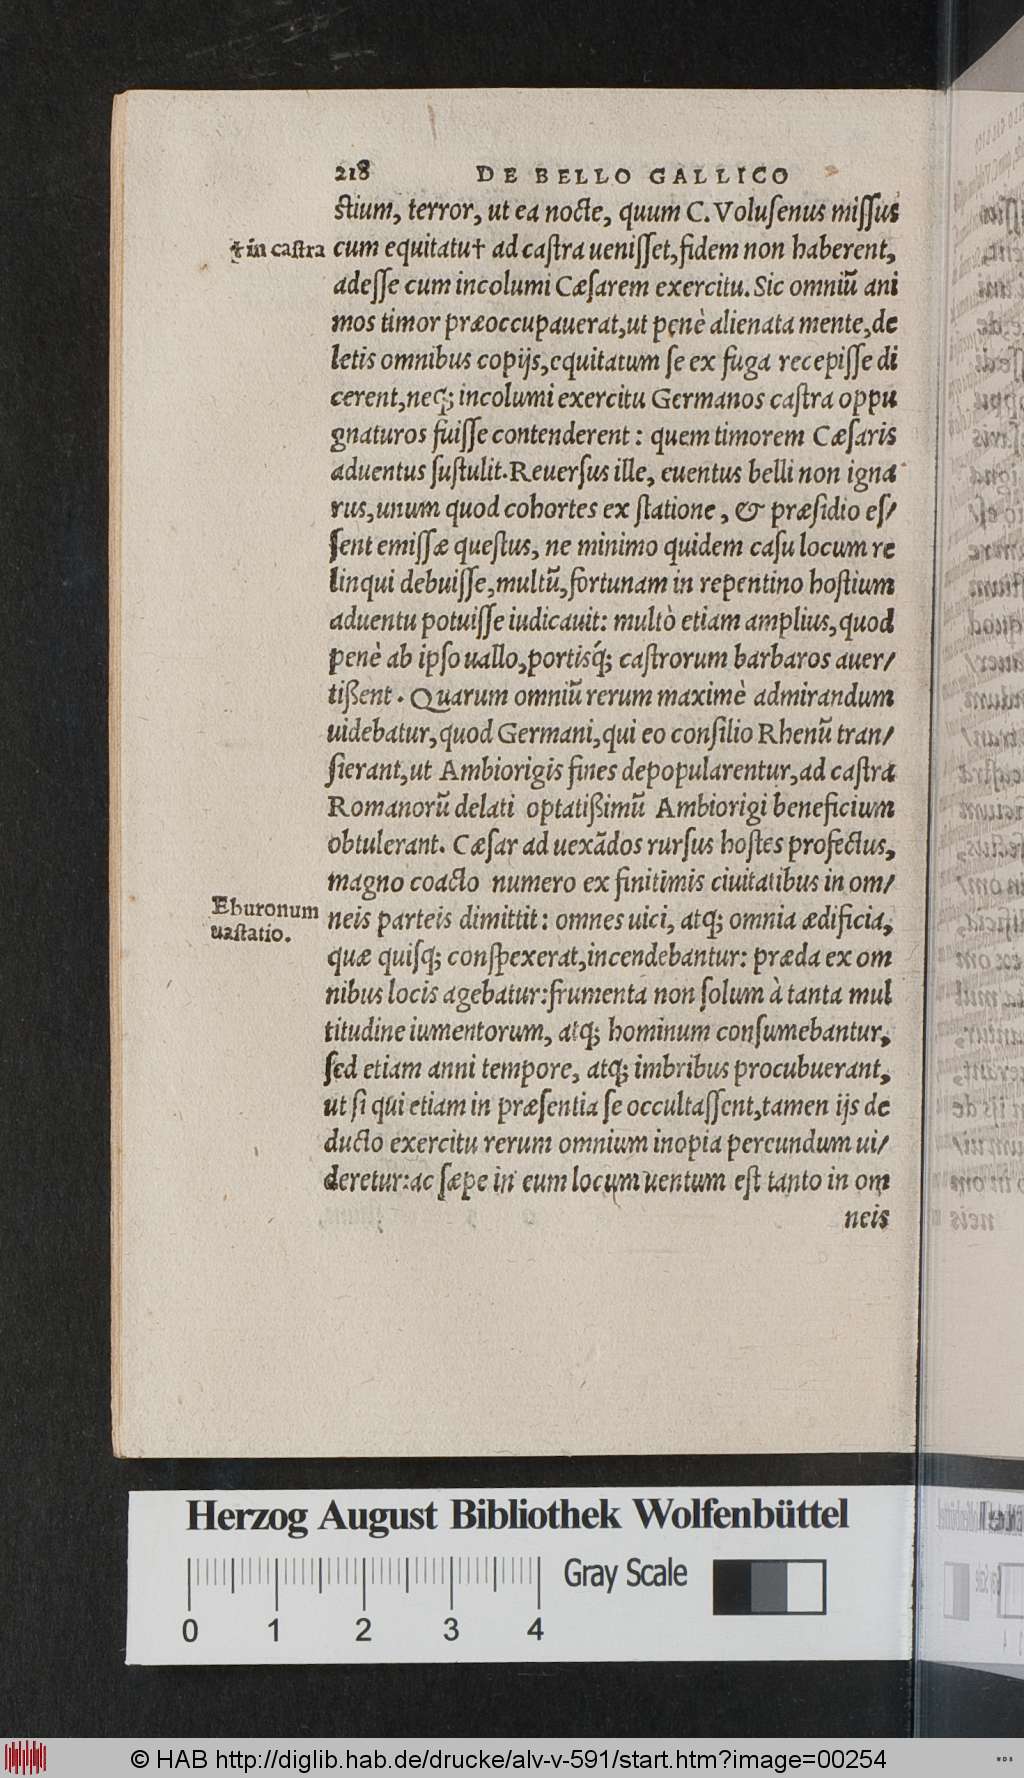 218 DE BELLO GALLICO
ſtium, terror, ut ea nocte, quum C. Voluſenus miſſus
cum equitatu† ad caſtra ueniſſet, fidem non haberent,
† in caſtra
adeſſe cum incolumi Cæſarem exercitu. Sic omniũ ani
mos timor præoccupauerat, ut penè alienata mente, de
letis omnibus copijs, equitatum ſe ex fuga recepiſſe di
cerent, neq; incolumi exercitu Germanos caſtra oppu
gnaturos fuiſſe contenderent: quem timorem Cæſaris
aduentus ſuſtulit. Reuerſus ille, euentus belli non igna
rus, unum quod cohortes ex ſtatione, & præſidio eſ/
ſent emiſſæ queſtus, ne minimo quidem caſu locum re
linqui debuiſſe, multũ, fortunam in repentino hoſtium
aduentu potuiſſe iudicauit: multò etiam amplius, quod
penè ab ipſo uallo, portisq́; caſtrorum barbaros auer/
tißent. Quarum omniũ rerum maximè admirandum
uidebatur, quod Germani, qui eo conſilio Rhenũ tran/
ſierant, ut Ambiorigis fines depopularentur, ad caſtra
Romanorũ delati optatißimũ Ambiorigi beneficium
obtulerant. Cæſar ad uexãdos rurſus hoſtes profectus,
magno coacto numero ex finitimis ciuitatibus in om/
Eburonum
uaſtatio.
neis parteis dimittit: omnes uici, atq; omnia ædificia,
quæ quiſq; conſpexerat, incendebantur: præda ex om
nibus locis agebatur: frumenta non ſolum à tanta mul
titudine iumentorum, atq; hominum conſumebantur,
ſed etiam anni tempore, atq; imbribus procubuerant,
ut ſi qui etiam in præſentia ſe occultaſſent, tamen ijs de
ducto exercitu rerum omnium inopia pereundum ui/
deretur: ac ſæpe in eum locum uentum eſt tanto in om
neis
Herzog August Bibliothek Wolfenbüttel
Gray Scale
0 1 2 3 4
© HAB http://diglib.hab.de/drucke/alv-v-591/start.htm?image=00254